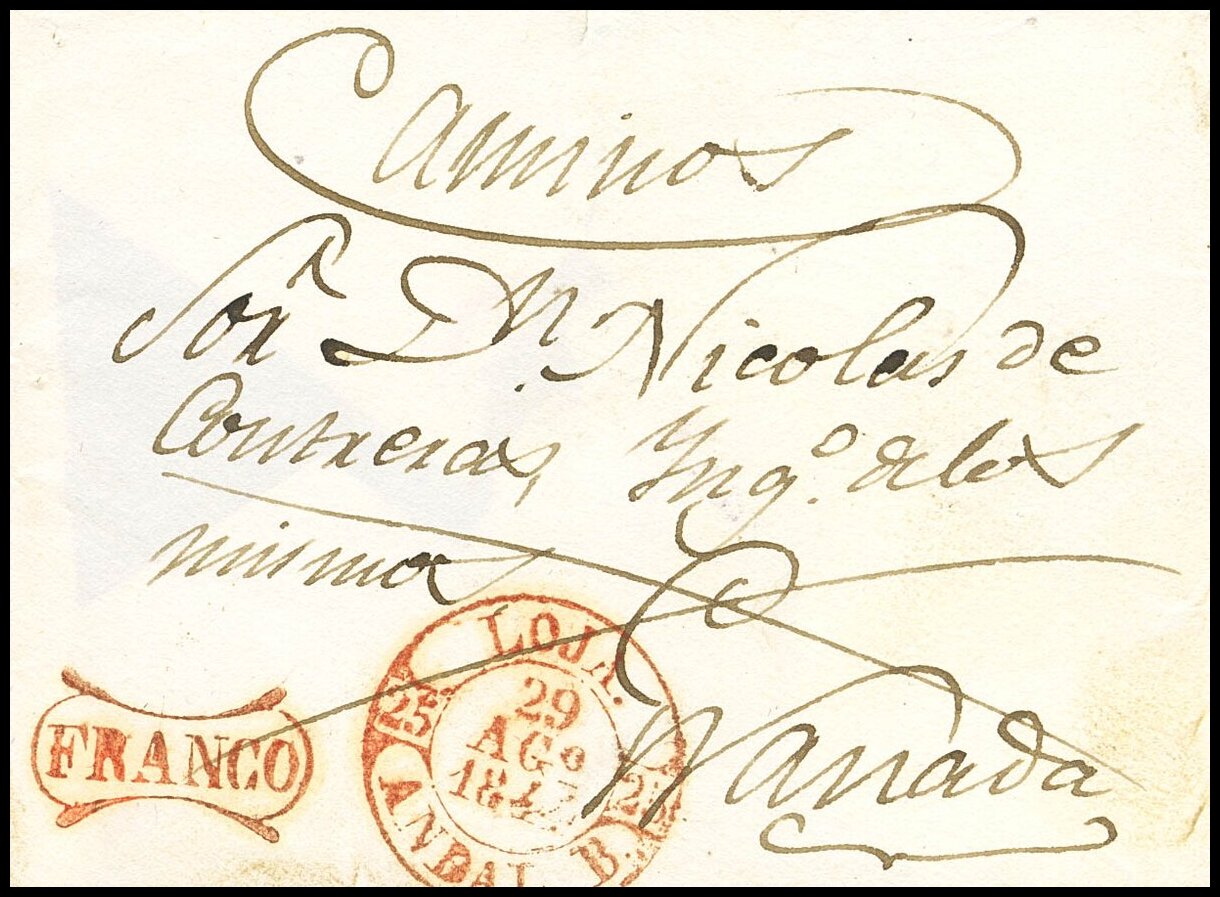 Caminos
Sor. Dn. Nicolas de
Contreras, Yngo. de los
mismos
Granada
FRANCO
LOJA.
29
AGo
1847
25 25
ANDAL B.